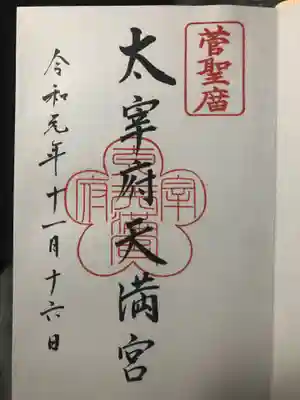 菅聖暦
太宰府天満宮
令和元年十一月十六日